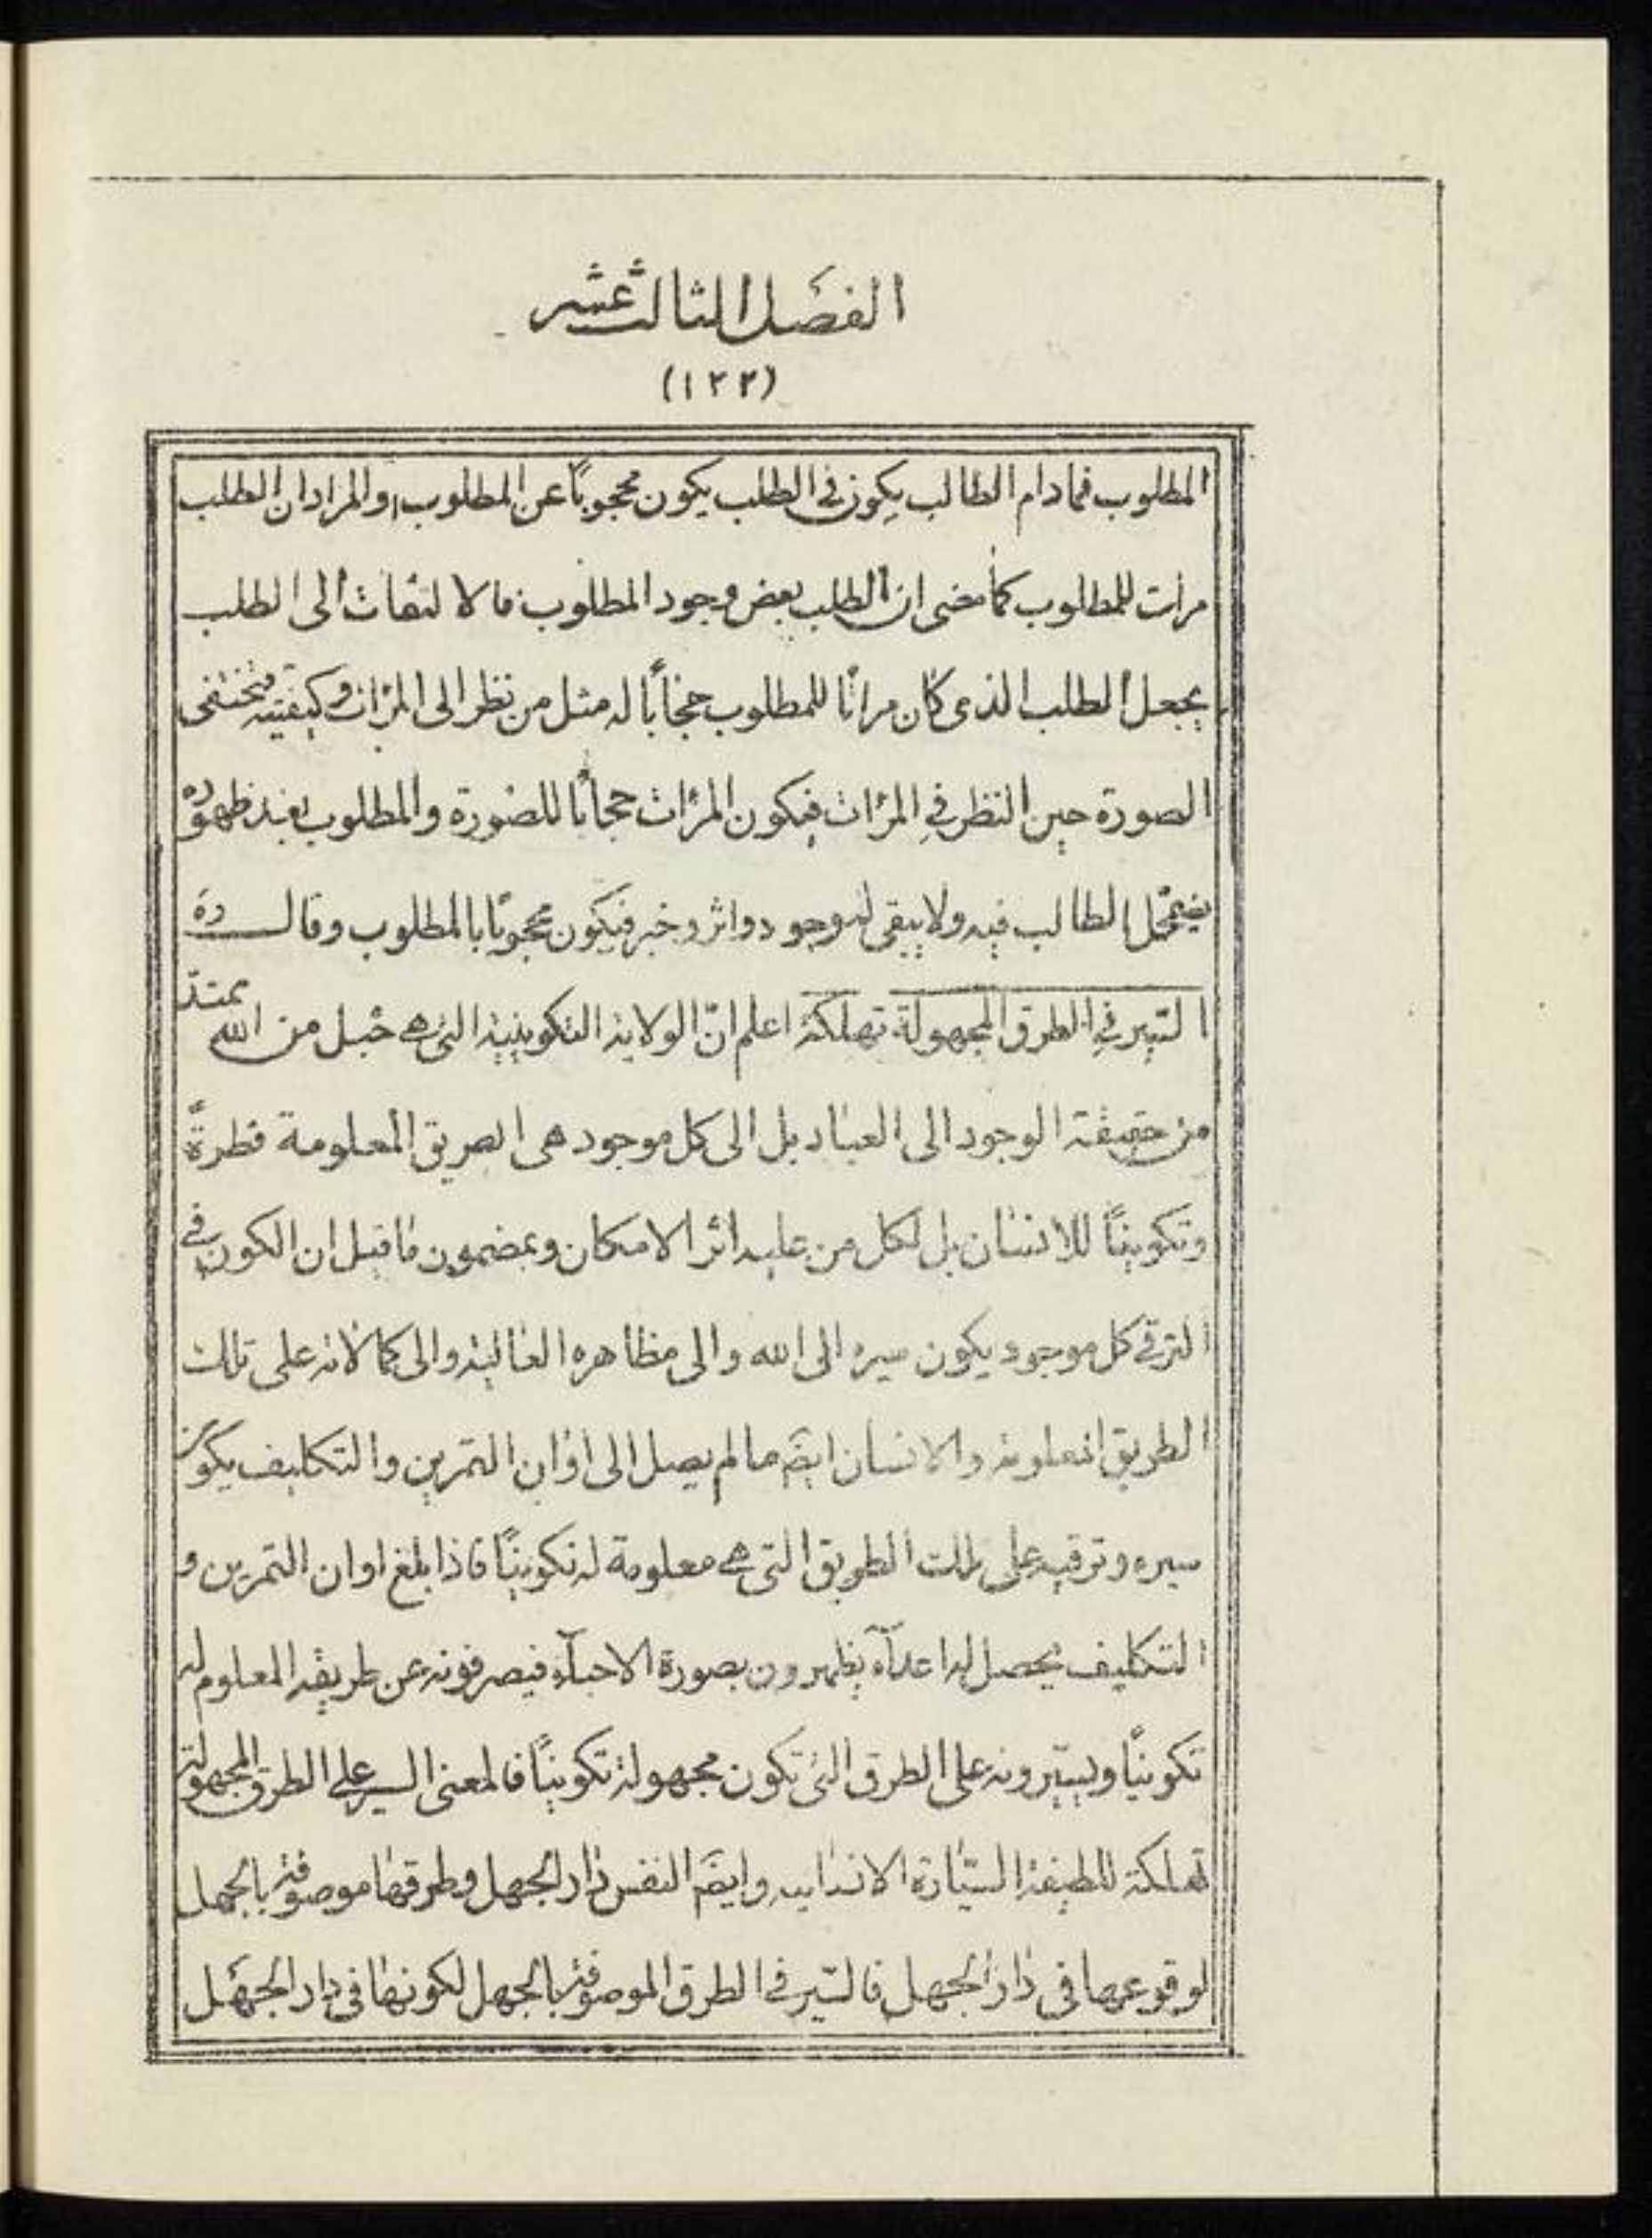 الفصل الثالث عشر
(١٢٣)
المطلوب فمادام الطالب يكون فى الطلب يكون محجوبًا عن المطلوب او المراد ان الطلب
مرات للمطلوب كما مضى ان الطلب بعض وجود المطلوب فالالتفات الى الطلب
يجعل الطلب الذى كان مراتا للمطلوب حجابًا له مثل من نظر الى المرات وكيفيته فيختفى
الصورة حين النظر فى المرات فيكون المرات حجابًا للصورة والمطلوب بعد ظهوره
يضمحل الطالب فيه ولا يبقى له وجود واثر وخبر فيكون محجوبًا بالمطلوب وقال ره
السير فى الطرق المجهولة تهلكة اعلم انّ الولاية التكوينية التى هى حبل من الله يمتد
من حقيقة الوجود الى العباد بل الى كل موجود هى الطريق المعلومة فطرةً
وتكوينًا للانسان بل لكل من عليه اثر الامكان وبمضمون ما قيل ان الكون فى
الترقى كل موجود يكون سيره الى الله والى مظاهره العالية والى كمالاته على تلك
الطريق المعلومة والانسان ايضَ مالم يصل الى اوان التمرين والتكليف يكون
سيره وترقيه على تلك الطريق التى هى معلومة له تكوينًا فاذا بلغ اوان التمرين و
التكليف يحصل له اعدآء يظهرون بصورة الاحبآء فيصرفونه عن طريقه المعلوم له
تكوينًا ويسيّرونه على الطرق التى تكون مجهولة تكوينًا فالمعنى السير على الطرق المجهولة
تهلكة للطيفة السيّارة الانسانيه وايضَ النفس دار الجهل وطرقها موصوفة بالجهل
لوقوعها فى دار الجهل فالسّير فى الطرق الموصوفة بالجهل لكونها فى دار الجهل